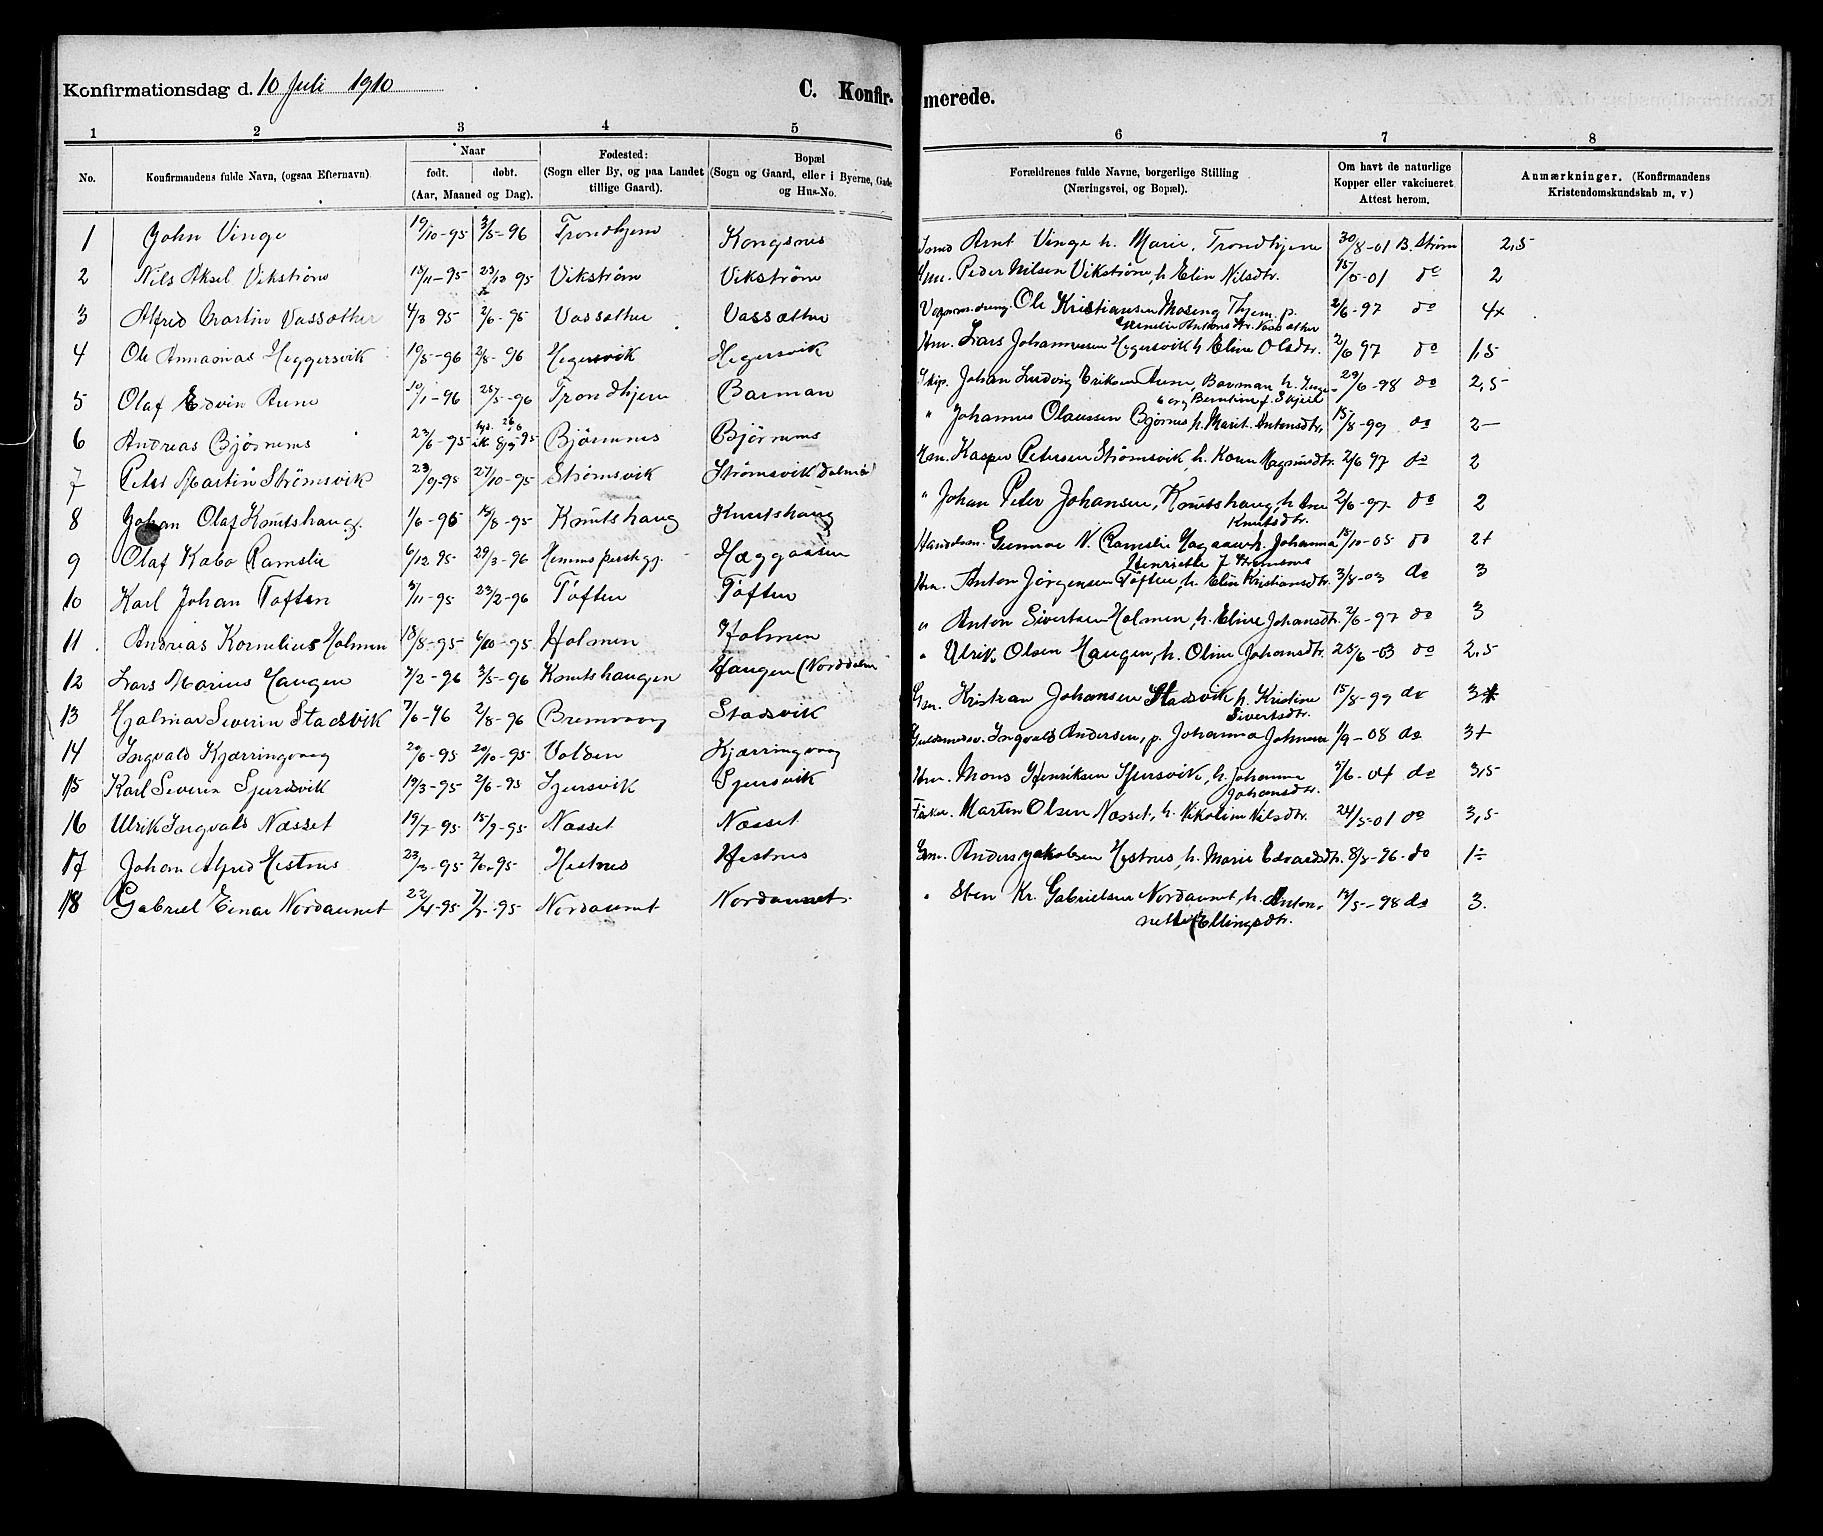 Konfirmationsdag d. 10 Juli 1910 C. Konfirmerede.
1 2 3 4 5 6 7 8
No. Konfirmandens fulde Navn, (ogsaa Efternavn) Naar født. døbt. (Aar, Maaned og Dag). Fødested: (Sogn eller By, og paa Landet tillige Gaard). Bopæl (Sogn og Gaard, eller i Byerne, Gade og Hus-No. Forældrenes fulde Navne, borgerlige Stilling (Næringsvei, og Bopæl). Om havt de naturlige Kopper eller vakcineret Attest herom. Anmærkninger. (Konfirmandens Kristendomskundskab m, v)
1 John Vinge 19/10-95 3/5-96 Trondhjem Kongsnes Arnt Vinge h. Marie, Trondhjem 30/8-01 B. Strøm 2,5
2 Nils Aksel Vikstrøm 13/11-95 Vikstrøm Vikstrøm Gm. Peder Nilsen Vikstrøm, h. Elin Nilsdtr. 15/5-01 do 2
3 Alfred Martin Vassæther 4/3 95 2/6-95 Vassæther Vassæther Ole Kristiansen Moseng Thjem. p.
Antonsdtr. Vassæther 2/6-97 do 4x
4 Ole Annanias Heggersvik 19/5-96 2/8-96 Hegersvik Hegersvik Hm. Lars Johannessen Hegersvik h Eline Olsdtr. 2/6 97 do 1,5
5 Olaf Edvin Aune 10/1-96 25/5-96 Trondhjem Barman Skip. Johan Ludvig Eriksen Aune, Barman h. Inge-
borg Berntine f. Skjeil 29/6-98 do 2,5-
6 Andreas Bjørnnes 23/6-95 Bjørnnes Bjørnnes " Johannes Olaussen Bjørnes h. Marit Antonsdtr. 15/8-99 do 2-
7 Peter Martin Strømsvik 23/9-95 27/10-95 Strømsvik Strømsvik Dolmø Gm. Kasper Petersen Strømsvik, h. Karen Magnusdtr. 2/6 97 do 2
8 Johan Olaf Knutshaug 1/6-95 18/8-95 Knutshaug Knutshaug " Johan Peter Johansen, Knutshaug, h.
Knutsdtr. 2/6-97 do 2
9 Olaf Kabo Ramslie 6/12 95 29/3-96 Hemne præstgj. Hæggaasen Handelsm. Gunnar N. Ramslie h. Johanna
Henriette f 15/10-05 do 2+
10 Karl Johan Toften 3/11-95 23/2-96 Toften Toften Hm. Anton Jørgensen Toften, h. Elin Kristiansdtr. 3/8-03 do 3
11 Andreas Kornelius Holmen 18/8-95 6/10-95 Holmen Holmen " Anton Sivertsen Holmen, h. Eline Johansdtr. 2/6-97 do 3
12 Lars Marius Haugen 7/2-96 3/5-96 Knutshaugen Haugen (Norddolm " Ulrik Olsen Haugen, h. Oline Johansdtr. 25/6-03 do 2,5
13 Hjalmar Severin Stadsvik 7/6-96 2/8-96 Bremvaag Stadsvik Gm. Kristian Johansen Stadsvik h. Kristine
Sivertsdtr. 15/8-99 do 3
14 Ingvald Kjærringvaag 20/6-95 20/10-95 Volden Kjærringvaag Ingvald Andersen, p. Johanna Johnsen 1/9-08 do 3+
15 Karl Severin Sjursvik 19/3-95 2/6-95 Sjursvik Sjursvik Hm. Mons Henriksen Sjursvik, h. Johanna
Johansdtr. 5/6-04 do 3,5
16 Ulrik Ingvald Næsset 19/7-95 15/9-95 Næsset Næsset Fisker. Martin Olsen Næsset, h. Nikoline Nilsdtr. 24/5-01 do 3,5
17 Johan Alfred Hestnes 23/3-95 Hestnes Hestnes Gm. Anders Jakobsen Hestnes, h. Marie Edvardsdtr. 8/8-96 do 1÷
18 Gabriel Einar Nordaunet 22/4-95 Nordaunet Nordaunet " Sten Kr. Gabrielsen Nordaunet, h. Anton-
nette Ellingsdtr. 13/5-98 do 3.